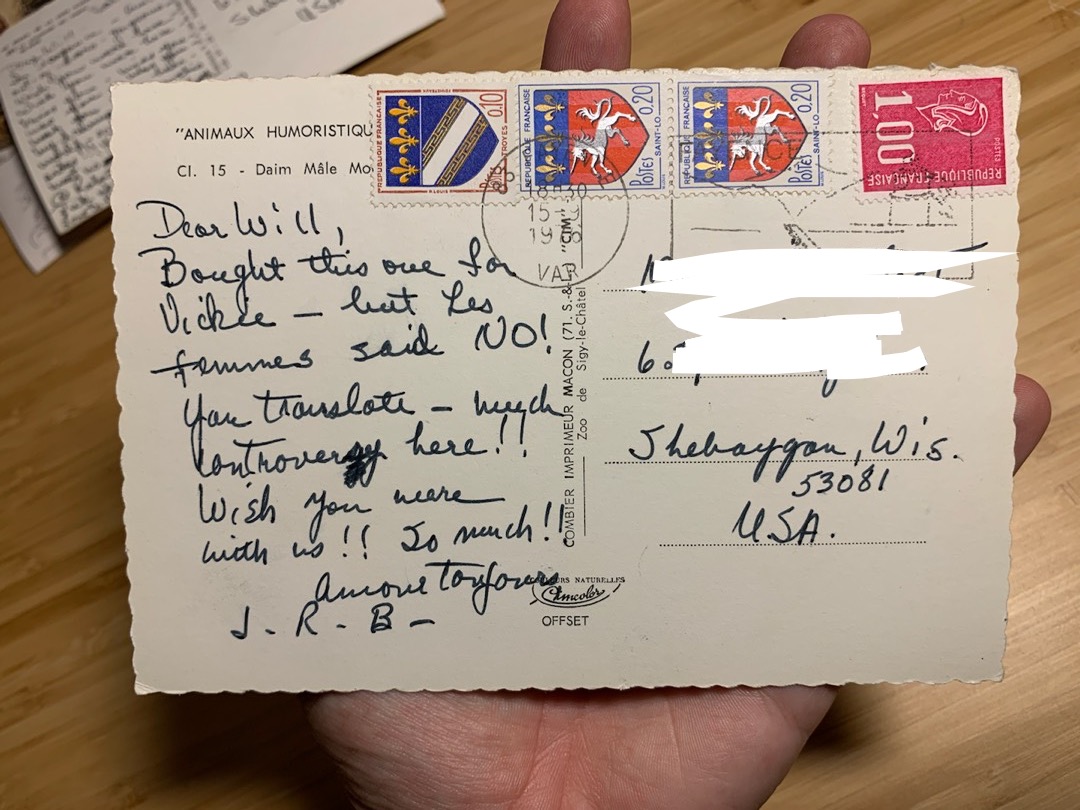 "ANIMAUX HUMORISTIQU
Cl. 15 - Daim Mâle Mo
Dear Will,
Bought this one for
Vickie — but Les
femmes said NO!
You translate — much
controversy here!!
Wish you weare
with us!! So much!!
Amoure Toujours
J. R. B —
COMBIER IMPRIMEUR MACON (71. S.-&-L.) "CIM"
Zoo de Sigy-le-Châtel
COULEURS NATURELLES
Cimcolor
OFFSET
REPUBLIQUE FRANÇAISE
0,10
TROYES
REPUBLIQUE FRANÇAISE
0,20
POSTES
SAINT-LO
REPUBLIQUE FRANÇAISE
0,20
POSTES
SAINT-LO
1,00
POSTES
REPUBLIQUE FRANÇAISE
8H30
15
VAR
Shebaygan, Wis.
53081
USA.